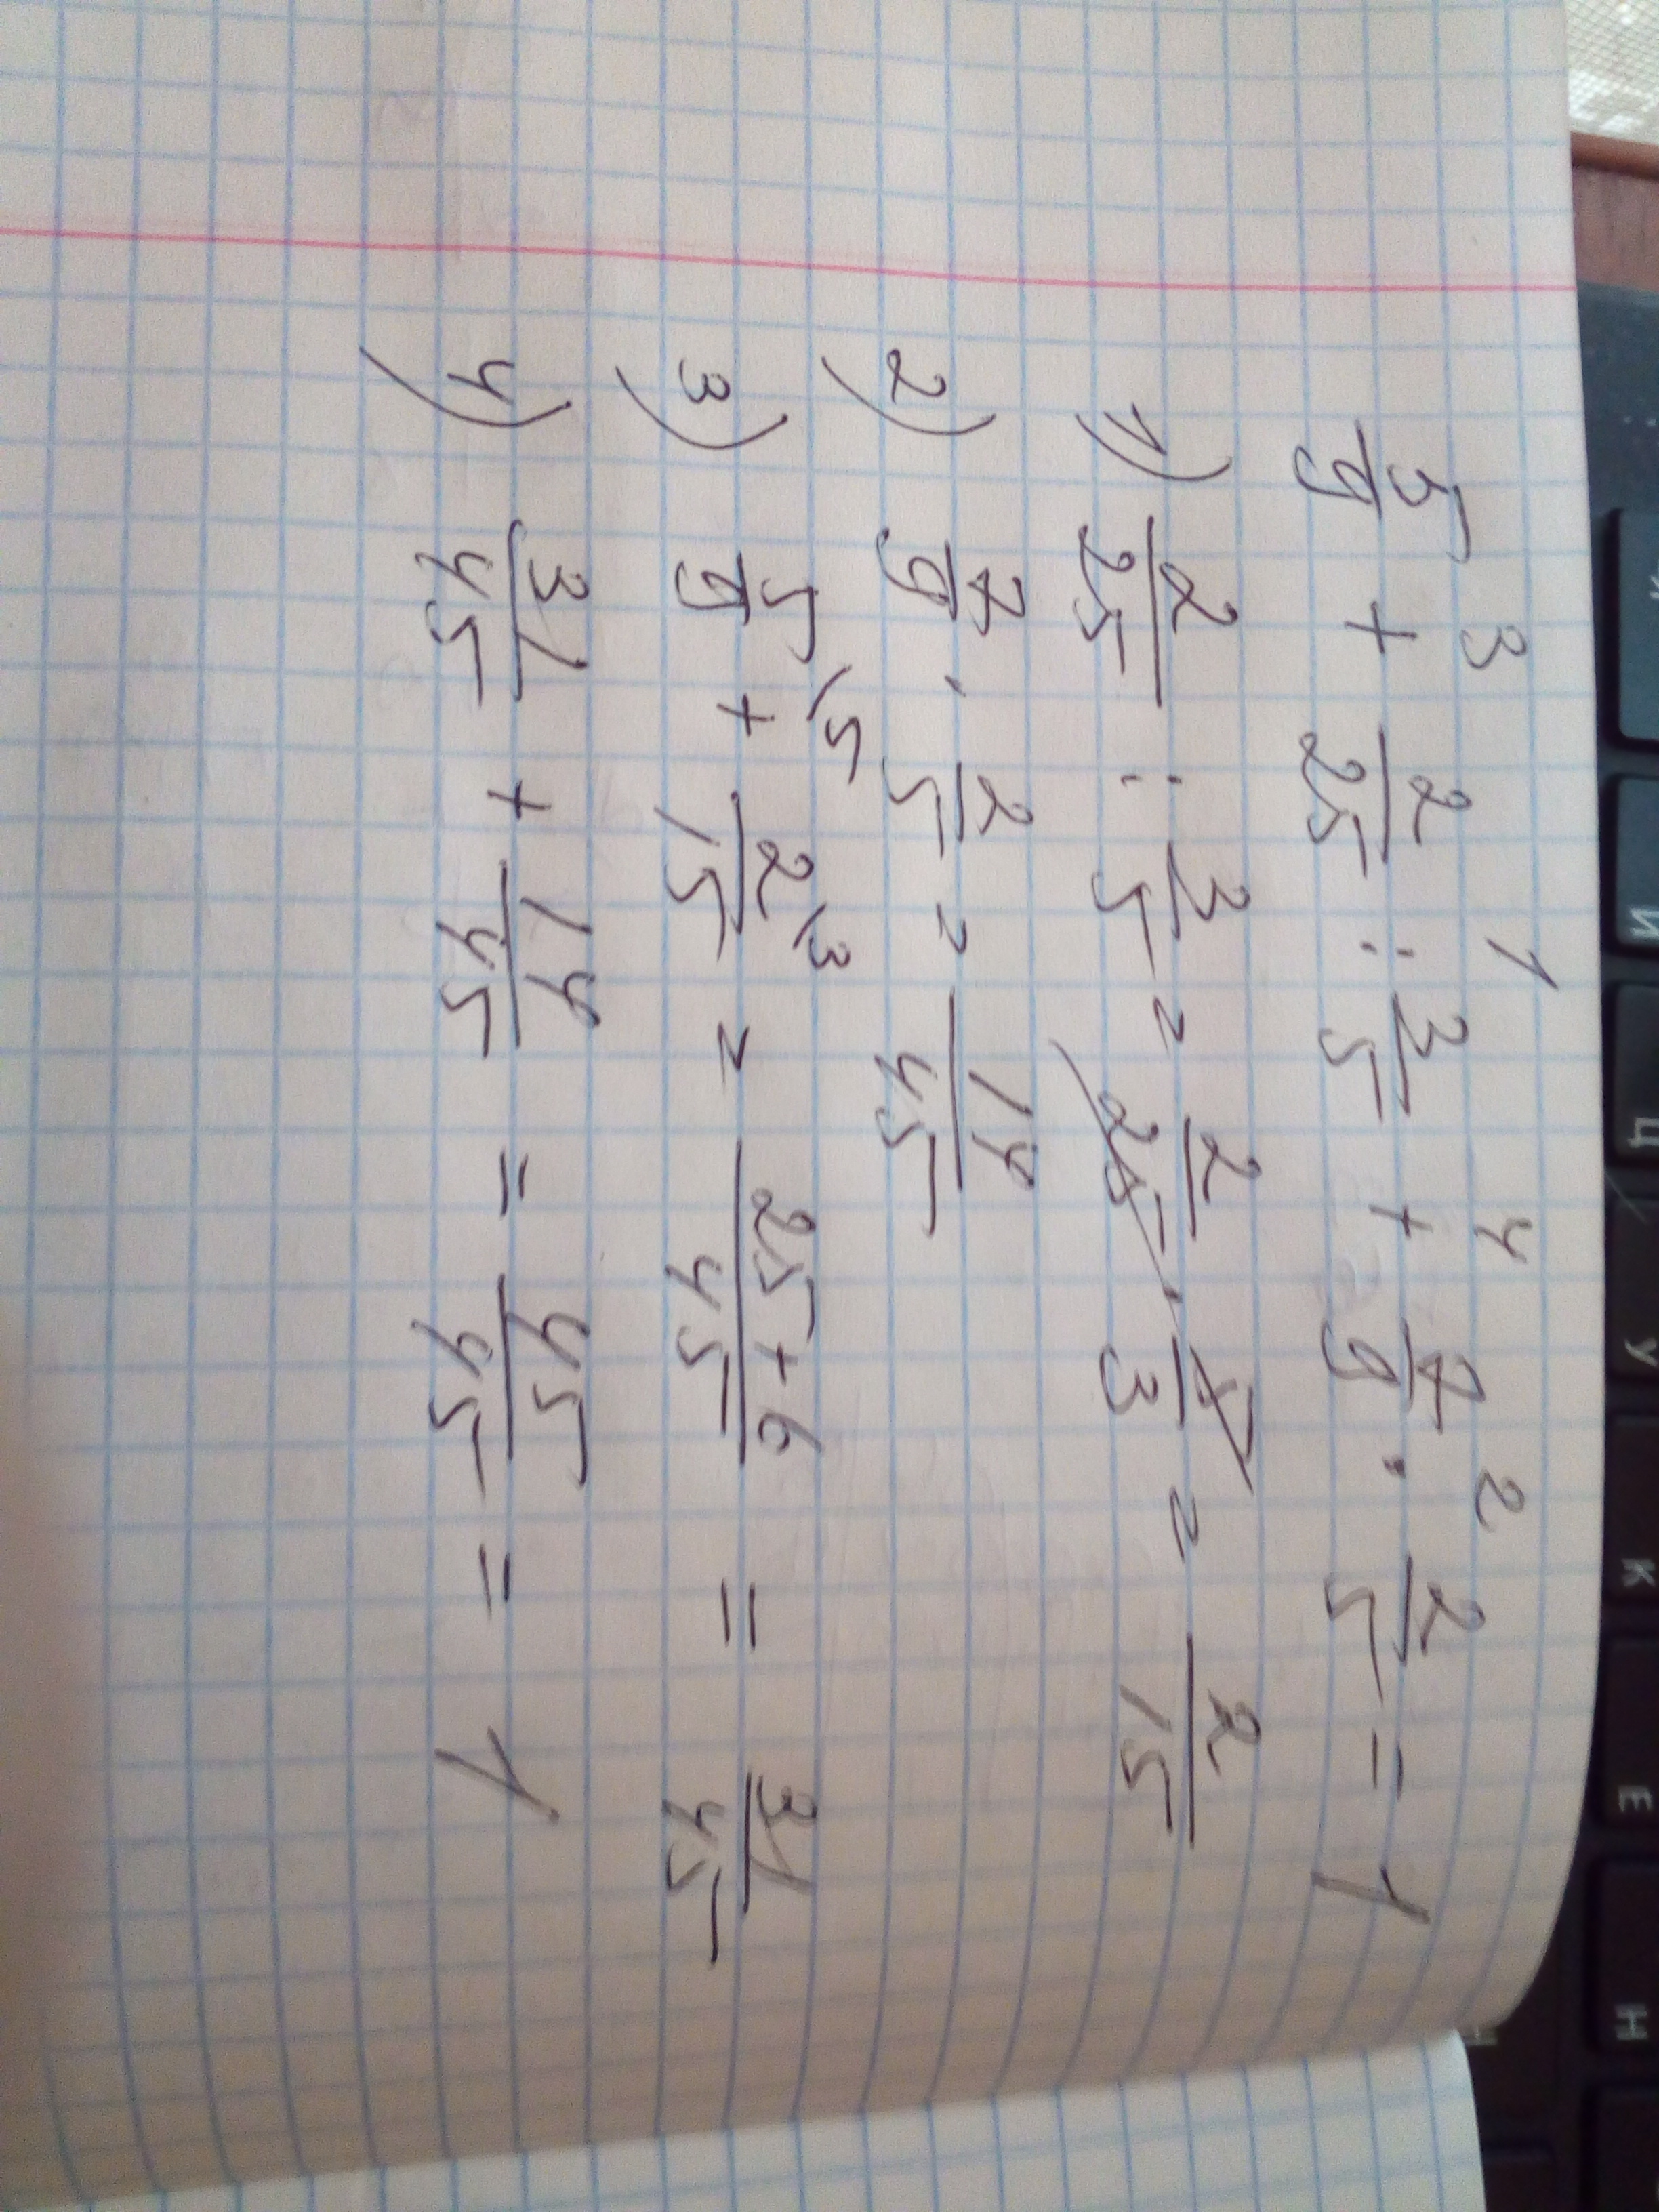 3 1 4 2
5/9 + 2/25 : 3/5 + 7/9 · 2/5 = 1
1) 2/25 : 3/5 = 2/25 · 5/3 = 2/15
2) 7/9 · 2/5 = 14/45
3) 5/9 \5 + 2/15 \3 = 25+6/45 = 31/45
4) 31/45 + 14/45 = 45/45 = 1
И
Ц
У
К
Е
Н